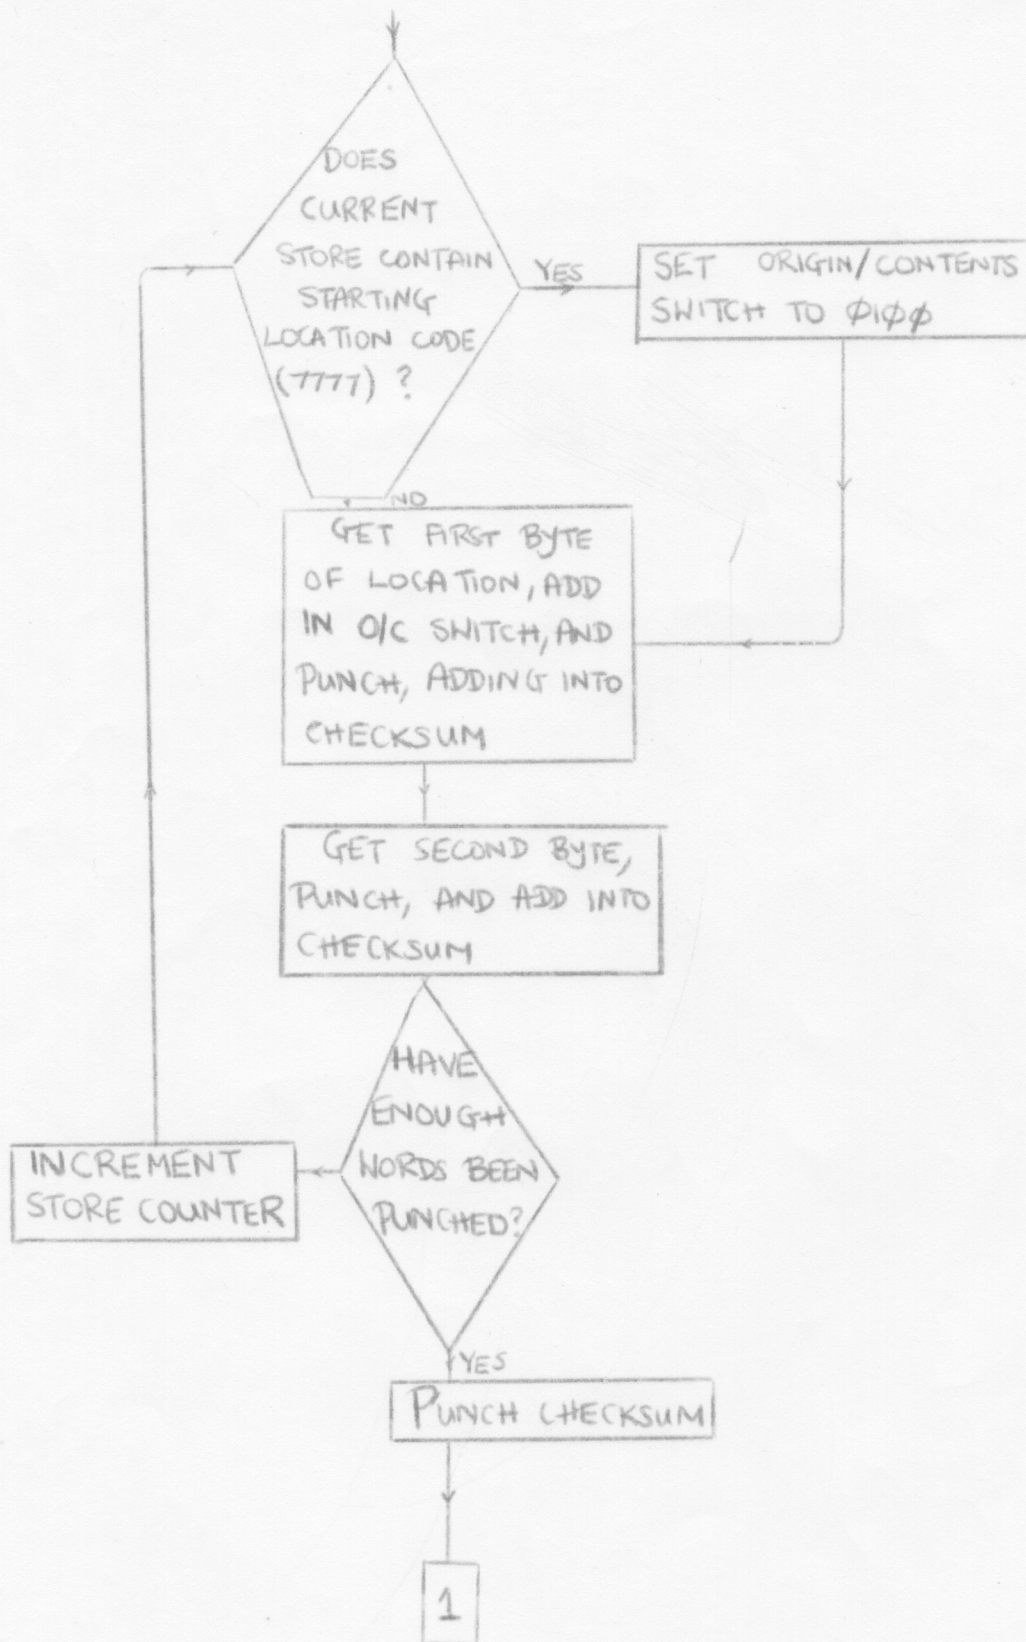 DOES
CURRENT
STORE CONTAIN
STARTING
LOCATION CODE
(7777) ?
YES
SET ORIGIN/CONTENTS
SWITCH TO Ø1ØØ
NO
GET FIRST BYTE
OF LOCATION, ADD
IN O/C SWITCH, AND
PUNCH, ADDING INTO
CHECKSUM
GET SECOND BYTE,
PUNCH, AND ADD INTO
CHECKSUM
HAVE
ENOUGH
WORDS BEEN
PUNCHED?
INCREMENT
STORE COUNTER
YES
PUNCH CHECKSUM
1